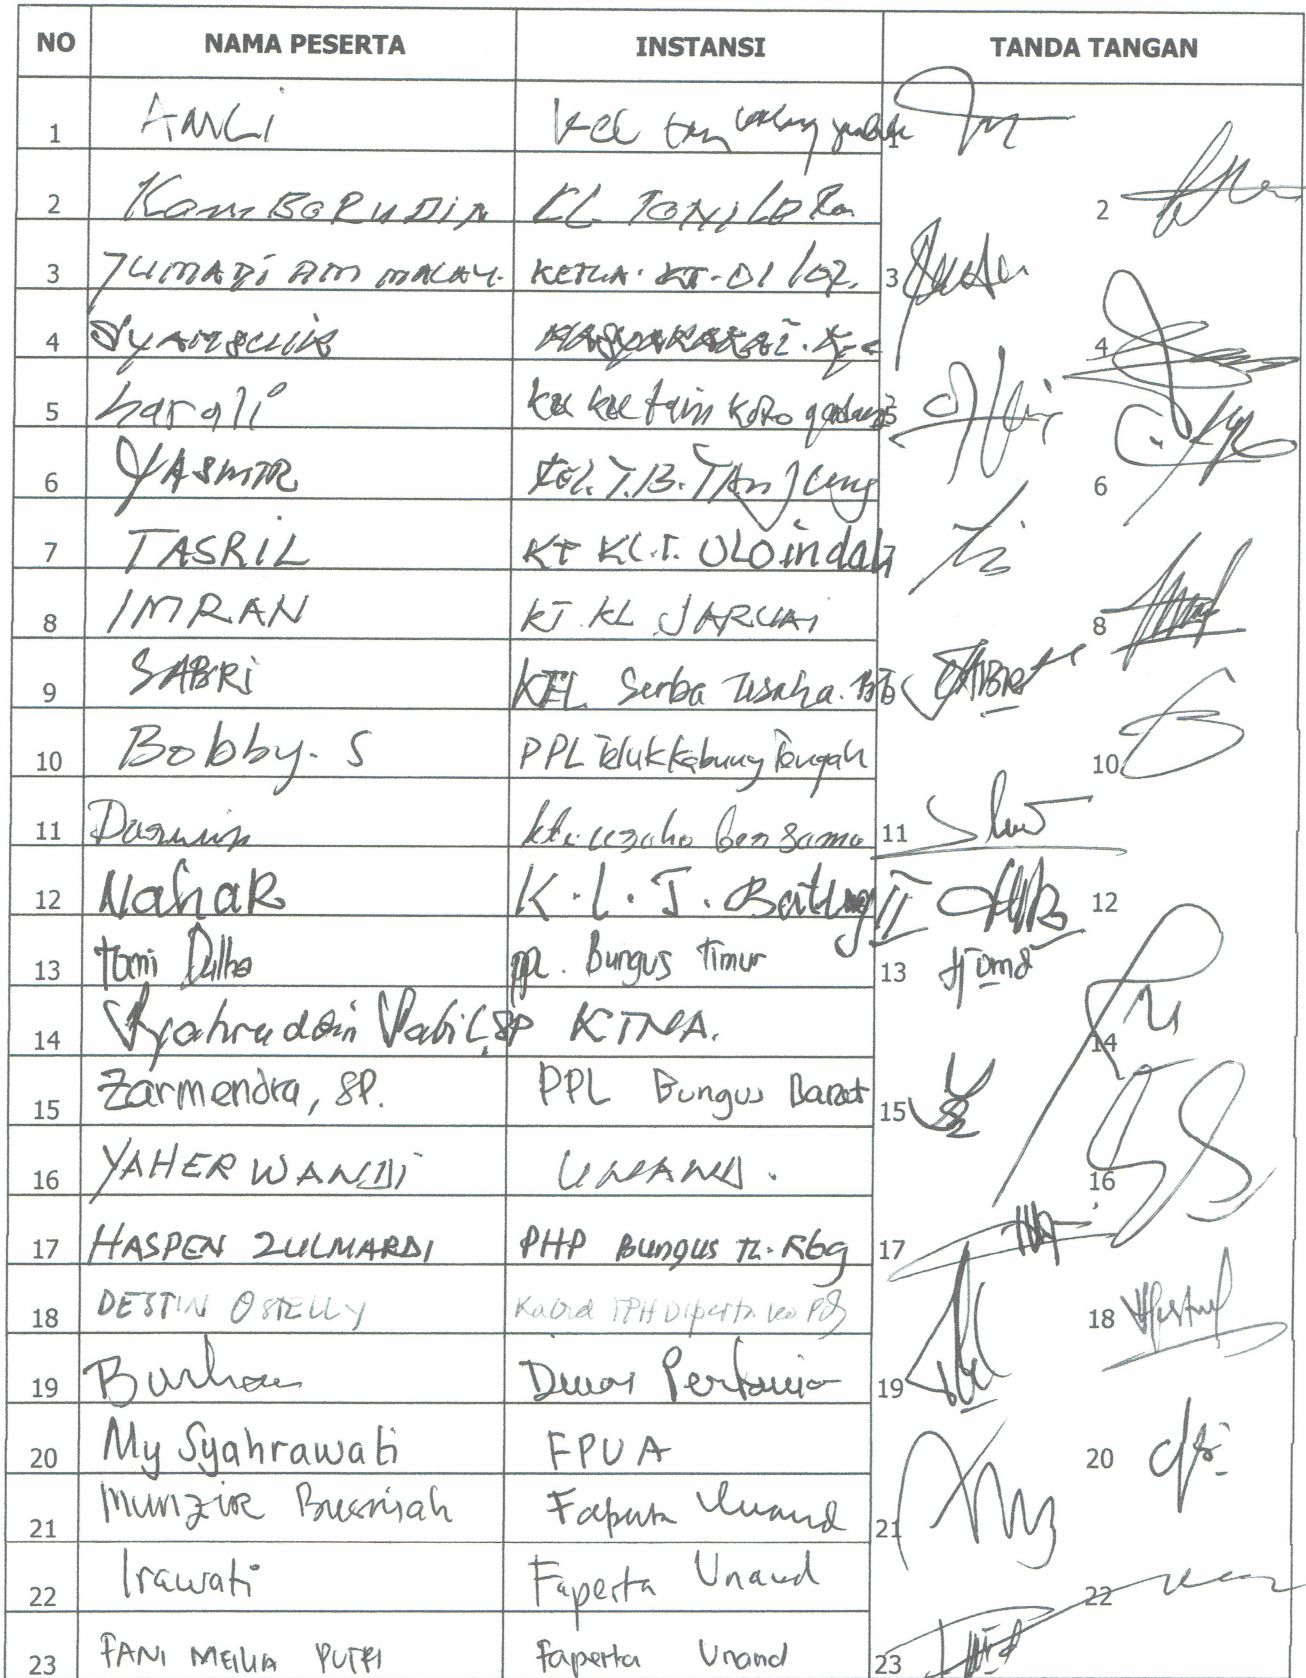 NO NAMA PESERTA INSTANSI TANDA TANGAN
1 AMLi Kel 1
2 KamBoRUDIN KL TONI 2
3 JUMADi AM MALAY. KETUA. KT. 3
4 4
5 harali Koto 5
6 YASMIR Kel. T.B. TAnJung 6
7 TASRIL KT KL.T. ULO indah 7
8 IMRAN KT. KL JARUAi 8
9 SABRi KEL Serba Usaha. 9
10 Bobby. S PPL Teluk Kabung Tengah 10
11 Darwin usaha bersama 11
12 NahaR K.L.T. Batung II 12
13 tomi Dulha ppl. Bungus Timur 13
14 Syahruddin SP KTNA. 14
15 Zarmendra, SP. PPL Bungus Barat 15
16 YAHERWANDI UNAND. 16
17 HASPEN ZULMARDI PHP Bungus TL. Kbg 17
18 DESTIN OSTELLY Kabid TPH Diperta 18
19 Burhan Dinas Pertanian 19
20 My Syahrawati FPUA 20
21 Munzir Busniah Faperta Unand 21
22 Irawati Faperta Unand 22
23 FANI MEILIA PUTRI Faperta Unand 23